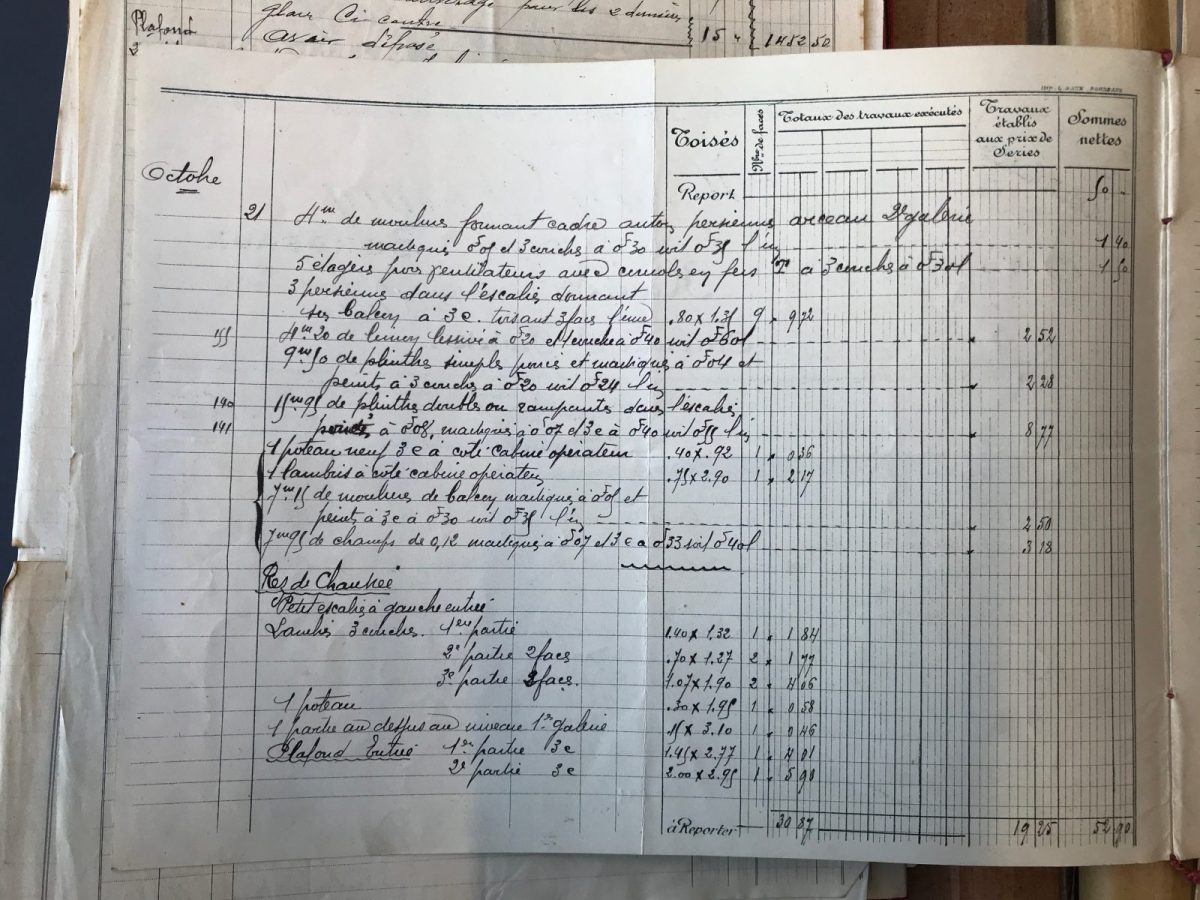 pour les 2 derniers
glaces Ci contre
Plafond
avoir déposé 15 " 1482 50
IMP. BORDEAUX
Toisés Nbre de faces Totaux des travaux exécutés Travaux établis aux prix de Series Sommes nettes
Octobre
Report 50 -
21 4m de moulures formant cadre autour persiennes arceau 2e galerie
mastiqués 0f05 et 3 couches à 0f30 soit 0f35 l'un 1 40
5 étagères pour ventilateurs avec en fers T à 3 couches à 0f30 l 1 50
3 persiennes dans l'éscalier donnant
sur balcon à 3c. toisant 3 faces l'une .80 x 1.35 9 " 9 72
155 4m20 de lessivé à 0f20 et 1 couche à 0f40 soit 0f60 l 2 52
9m50 de plinthes simples poncés et mastiqués à 0f04 et
peints à 3 couches à 0f20 soit 0f24 l'un 2 28
140 15m95 de plinthes doubles ou rampants dans l'éscalier
141 à 0f08, mastiqués à 0f07 et 3c à 0f40 soit 0f55 l'un 8 77
1 poteau neuf 3c à coté cabine opérateur .40 x .92 1 " 0 36
1 lambris à côté cabine opérateur .75 x 2.90 1 " 2 17
7m15 de moulures de balcon mastiqués à 0f05 et
peints à 3c à 0f30 soit 0f35 l'un 2 50
7m95 de champs de 0,12 mastiqués à 0f07 et 3c à 0f33 soit 0f40 l 3 18
Res de Chaussée
Petit escalier à gauche entrée
Lambris 3 couches. 1ere partie 1.40 x 1.32 1 " 1 84
2e partie 2 faces .70 x 1.27 2 " 1 77
3e partie 2 faces. 1.07 x 1.90 2 " 4 06
1 poteau .30 x 1.95 1 " 0 58
1 partie au dessus au niveau 1re galerie .15 x 3.10 1 " 0 46
Plafond Entrée 1re partie 3c 1.45 x 2.77 1 " 4 01
2e partie 3c 2.00 x 2.95 1 " 5 90
à Reporter 30 87 19 25 52 90